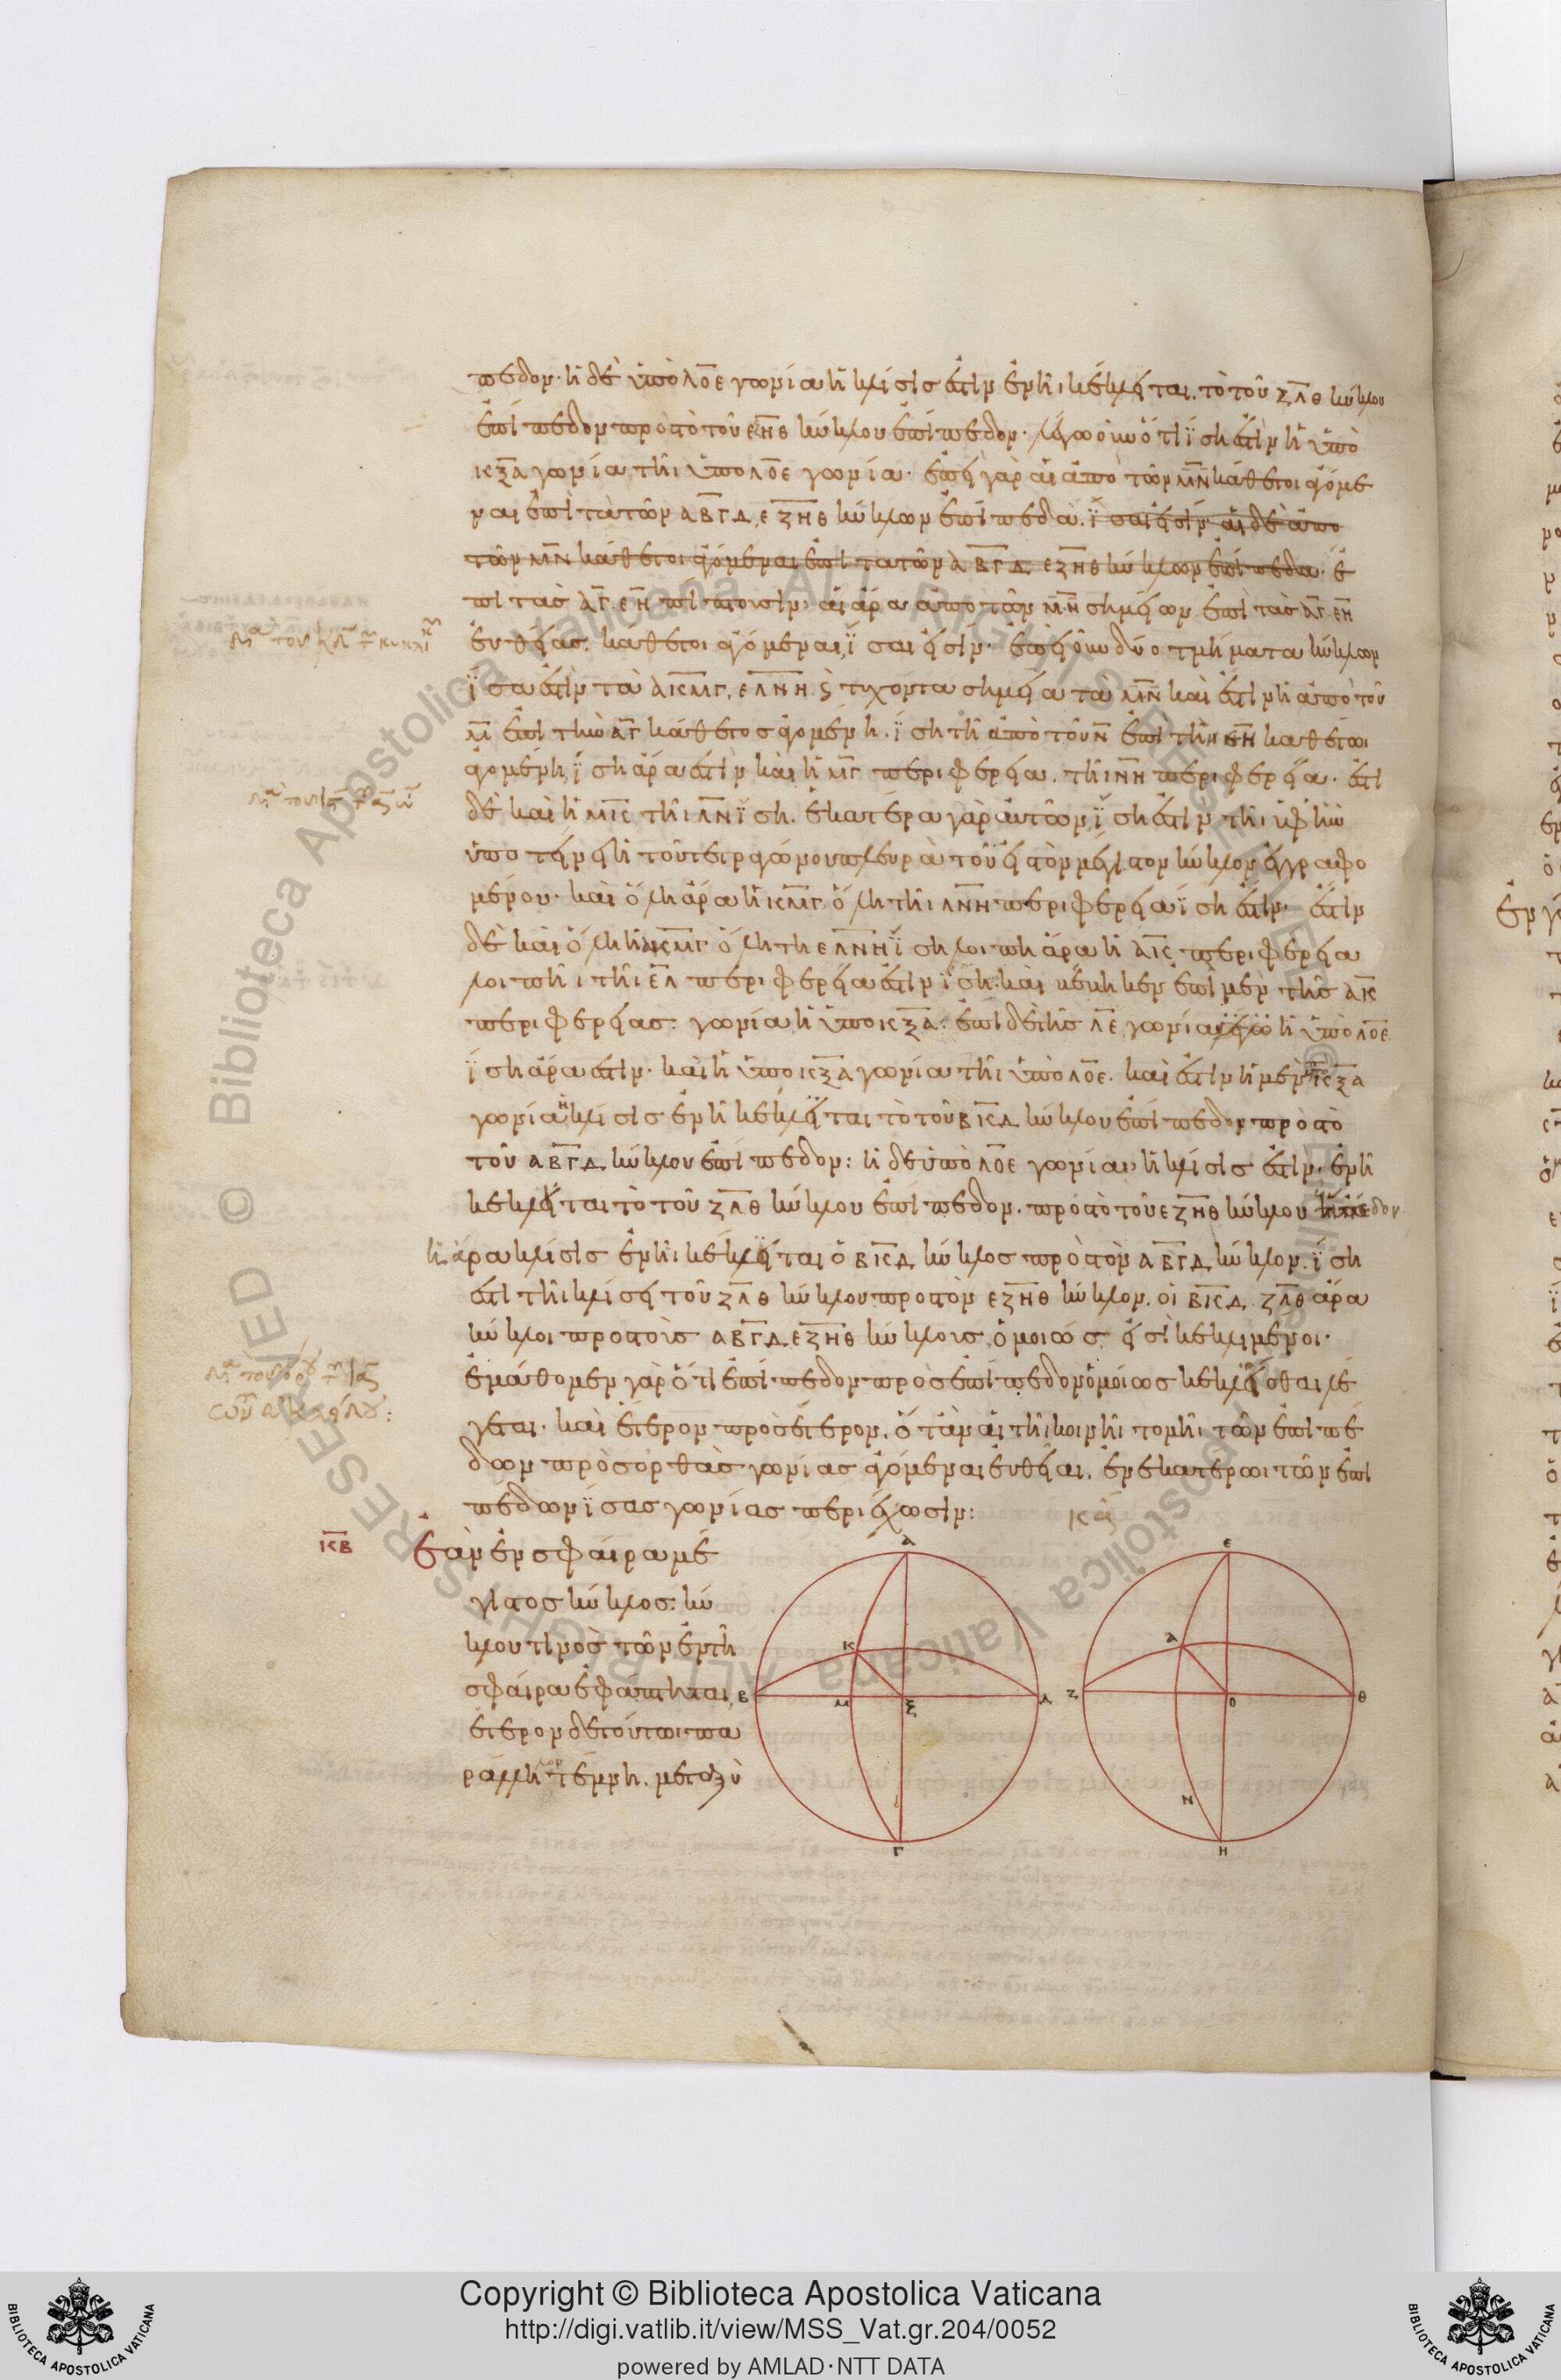 πεδον. ἡ δὲ ὑπὸ ΛΟΕ γωνία ἡ κλίσις ἐστὶν ἐν ἧι κέκλιται τὸ τοῦ ΖΛΘ κύκλου
ἐπίπεδον πρὸς τὸ τοῦ ΕΖΗΘ κύκλου ἐπίπεδον. λέγω οὖν ὅτι ἴση ἐστὶν ἡ ὑπὸ
ΚΞΑ γωνία τῆι ὑπὸ ΛΟΕ γωνία. ἐπεὶ γὰρ αἱ ἀπὸ τῶν ΜΝ κάθετοι ἀγόμε
ναι ἐπὶ τὰ τῶν ΑΒΓΔ, ΕΖΗΘ κύκλων ἐπίπεδα. ἴσαι εἰσίν. αἱ δὲ ἀπὸ
τῶν ΜΝ κάθετοι ἀγόμεναι ἐπὶ τὰ τῶν ΑΒΓΔ ΕΖΗΘ κύκλων ἐπίπεδα. ἐ
πὶ τὰς ΑΓ. ΕΗ πίπτουσιν. αἱ ἄρα ἀπὸ τῶν ΜΝ σημείων ἐπὶ τὰς ΑΓ. ΕΗ
εὐθείας. κάθετοι ἀγόμεναι, ἴσαι εἰσίν. ἐπεὶ οὖν δύο τμήματα κύκλων
ἴσα ἐστὶν τὰ ΑΚΜΓ, ΕΛΝΗ. τυχόντα σημεῖα τὰ ΜΝ καὶ ἐστὶν ἡ ἀπὸ τοῦ
Μ ἐπὶ τὴν ΑΓ κάθετος ἀγομένη. ἴση τῆ ἀπὸ τοῦ Ν ἐπὶ τὴν ΕΗ καθέτωι
ἀγομένη, ἴση ἄρα ἐστὶν καὶ ἡ ΜΓ περιφέρεια. τῆι ΝΗ περιφερεία. ἐστὶ
δὲ καὶ ἡ ΜΚ τῆι ΛΝ ἴση. ἑκατέρα γὰρ αὐτῶν ἴση ἐστὶν τῆι ὑφ' ἣν
ὑποτείνει ἡ τοῦ τετραγώνου πλευρὰ τοῦ εἰς τὸν μέγιστον κύκλον ἐγγραφο
μένου. καὶ ὅλη ἄρα ἡ ΚΜΓ ὅλη τῆι ΛΝΗ περιφερεία ἴση ἐστίν. ἐστὶν
δὲ καὶ ὅλη ἡ ΑΚΜΓ ὅλη τῆ ΕΛΝΗ ἴση λοιπὴ ἄρα ἡ ΑΚ περιφέρεια
λοιπῆι τῆι ΕΛ περιφερεία ἐστὶν ἴση. καὶ βέβηκεν ἐπὶ μὲν τῆς ΑΚ
περιφερείας. γωνία ἡ ὑπὸ ΚΞΑ. ἐπὶ δὲ τῆς ΛΕ γωνία ἡ ὑπὸ ΛΟΕ
ἴση ἄρα ἐστὶν. καὶ ἡ ὑπὸ ΚΞΑ γωνία τῆι ὑπὸ ΛΟΕ. καὶ ἐστὶν ἡ μὲν ὑπὸ ΚΞΑ
γωνία ἡ κλίσις ἐν ἧ κέκλιται τὸ τοῦ ΒΚΔ κύκλου ἐπίπεδον πρὸς τὸ
τοῦ ΑΒΓΔ κύκλου ἐπίπεδον: ἡ δὲ ὑπὸ ΛΟΕ γωνία, ἡ κλίσις ἐστὶν. ἐν ἧ
κέκλιται τὸ τοῦ ΖΛΘ κύκλου ἐπίπεδον. πρὸς τὸ τοῦ ΕΖΗΘ κύκλου ἐπίπεδον.
ἡ ἄρα κλίσις ἐν ἧι κέκλιται ὁ ΒΚΔ κύκλος πρὸς τὸν ΑΒΓΔ κύκλον. ἴση
ἐστὶ τῆι κλίσει τοῦ ΖΛΘ κύκλου πρὸς τὸν ΕΖΗΘ κύκλον. οἱ ΒΚΔ. ΖΛΘ ἄρα
κύκλοι πρὸς τοὺς ΑΒΓΔ ΕΖΗΘ κύκλους, ὁμοίως εἰσὶ κεκλιμένοι.
ἐμάθομεν γὰρ ὅτι ἐπίπεδον πρὸς ἐπίπεδον ὁμοίως κεκλίσθαι λέ
γεται. καὶ ἕτερον πρὸς ἕτερον. ὅταν αἱ τῆι κοινῆι τομῆι τῶν ἐπιπέ
δων πρὸς ὀρθὰς γωνίας ἀγόμεναι εὐθεῖαι. ἐν ἑκατέρωι τῶν ἐπι
πέδων ἴσας γωνίας περιέχωσιν:
ΚΒ Ἐὰν ἐν σφαίρα μέ
γιστος κύκλος: κύ
κλου τινὸς τῶν ἐν τῆ
σφαίρα ἐφάπτηται,
ἕτερον δὲ τούτωι πα
ράλληλον τέμνη. μεταξὺ
κα
Α Β Γ Δ Κ Μ Ξ
Ε Ζ Η Θ Λ Ο Ν
Copyright © Biblioteca Apostolica Vaticana
http://digi.vatlib.it/view/MSS_Vat.gr.204/0052
powered by AMLAD·NTT DATA
BIBLIOTECA APOSTOLICA VATICANA
BIBLIOTECA APOSTOLICA VATICANA